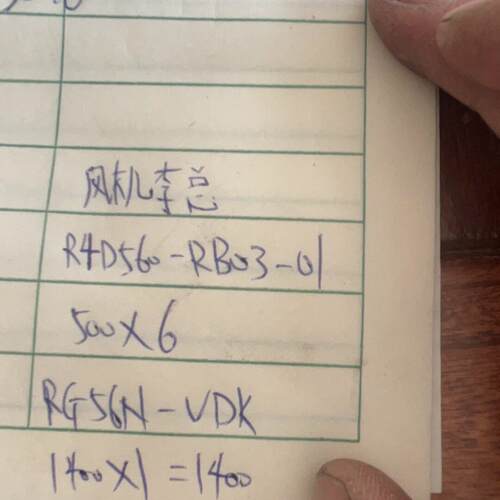 风机李总
R4D560-RB03-01
500×6
RG56N-VDK
1400×1=1400